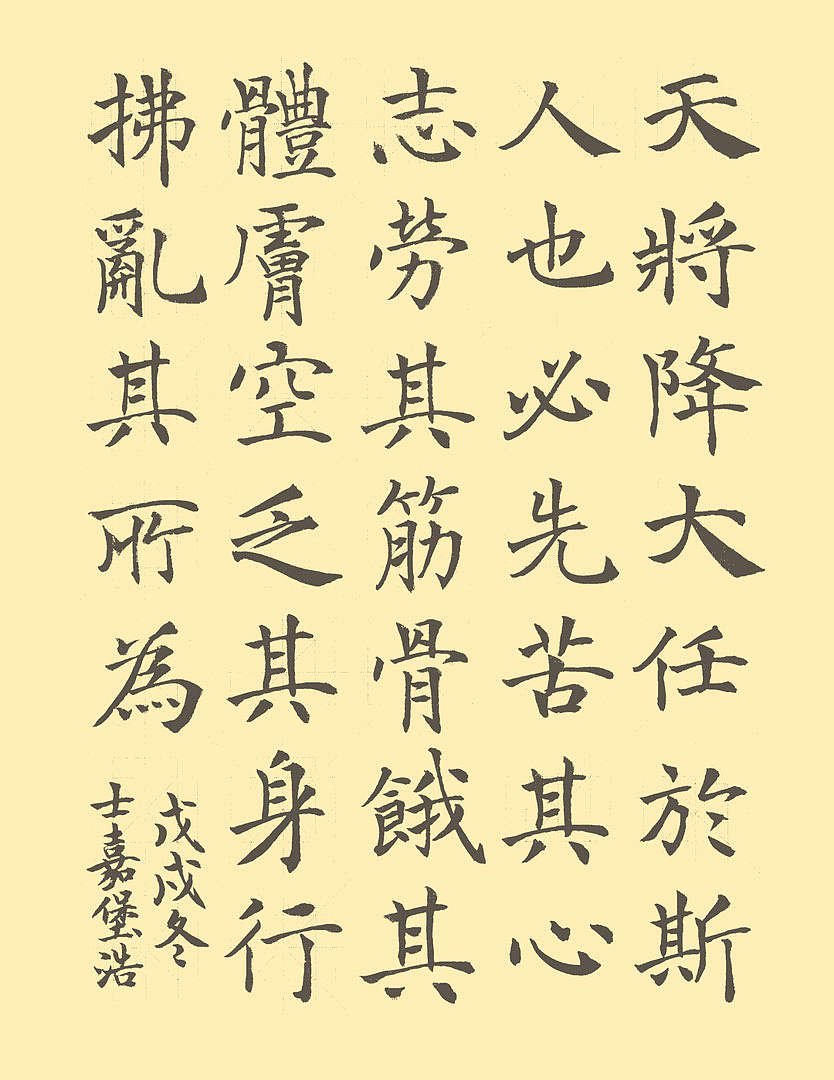 天將降大任於斯
人也必先苦其心
志勞其筋骨餓其
體膚空乏其身行
拂亂其所為
戊戌冬
士嘉堡浩